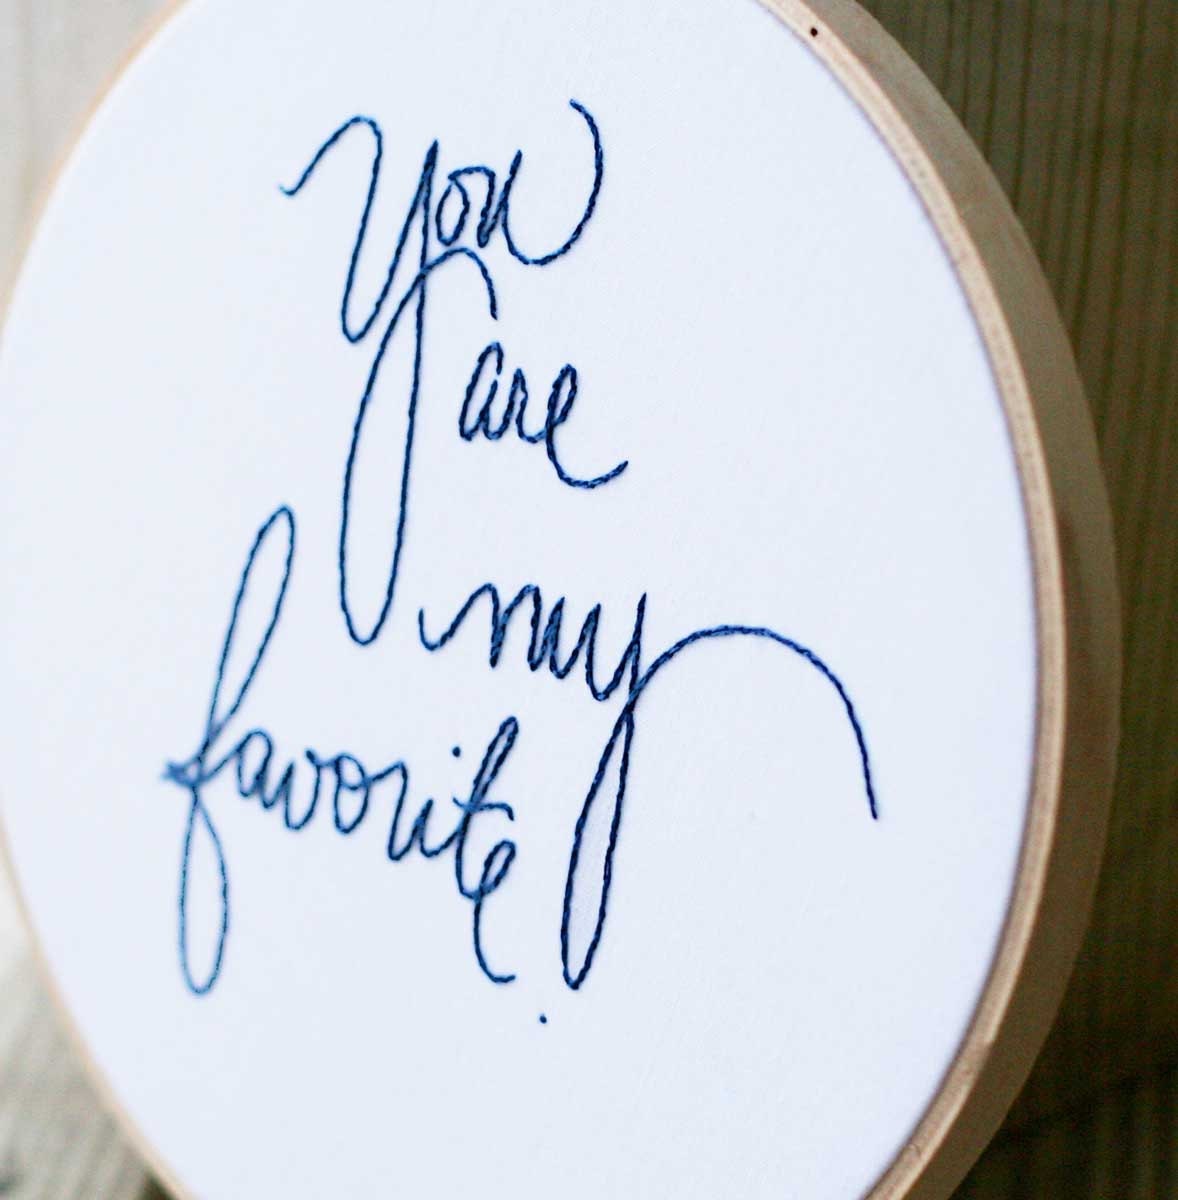 You
are
my
favorite.